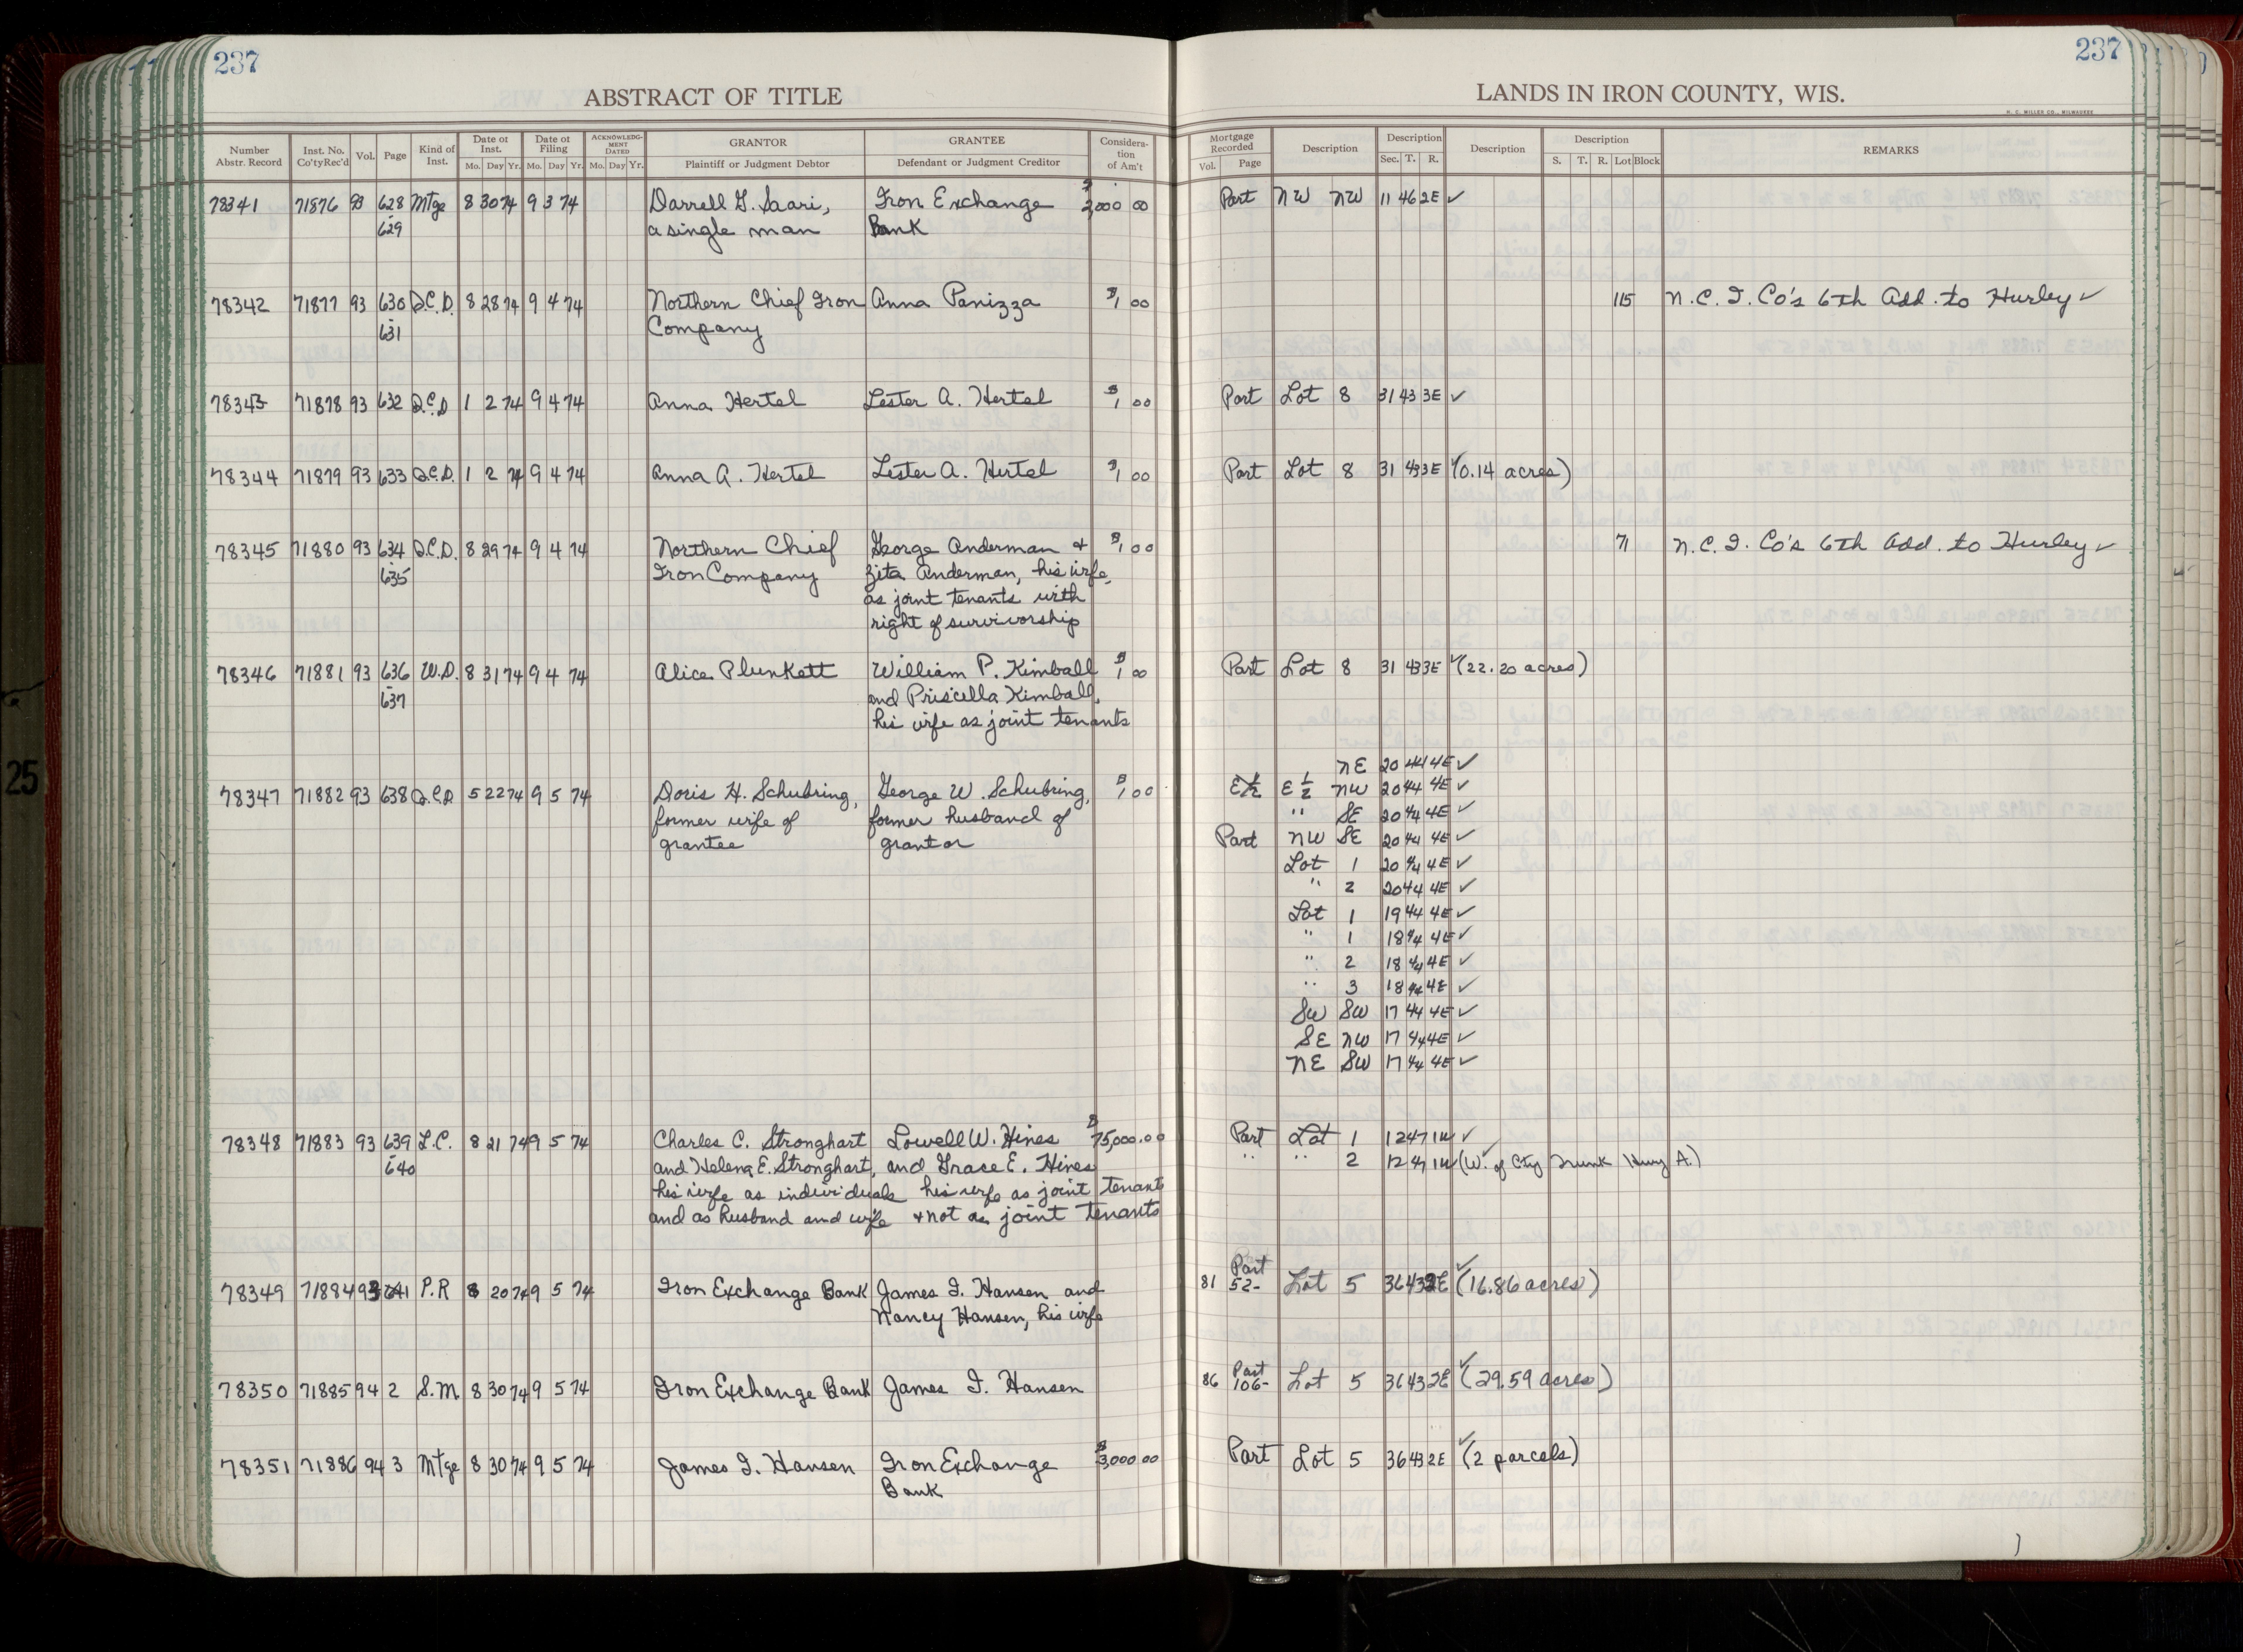 237
237
ABSTRACT OF TITLE
LANDS IN IRON COUNTY, WIS.
H. C. MILLER CO., MILWAUKEE
Number Abstr. Record Inst. No. Co'tyRec'd Vol. Page Kind of Inst. Date of Inst. Mo. Day Yr. Date of Filing Mo. Day Yr. ACKNOWLEDGMENT DATED Mo. Day Yr. GRANTOR Plaintiff or Judgment Debtor GRANTEE Defendant or Judgment Creditor Consideration of Am't Mortgage Recorded Vol. Page Description Description Sec. T. R. Description Description S. T. R. Lot Block REMARKS
78341 71876 93 628 Mtge 8 30 74 9 3 74 Darrell G. Saari, Iron Exchange $2,000 00 Part NW NW 11 46 2E ✓
- 629 a single man Bank
78342 71877 93 630 Q.C.D. 8 28 74 9 4 74 Northern Chief Iron Anna Panizza $1 00 115 N.C.I. Co's 6th Add. to Hurley ✓
- 631 Company
78343 71878 93 632 Q.C.D 1 2 74 9 4 74 Anna Hertel Lester A. Hertel $1 00 Part Lot 8 31 43 3E ✓
78344 71879 93 633 Q.C.D. 1 2 74 9 4 74 Anna A. Hertel Lester A. Hertel $1 00 Part Lot 8 31 43 3E ✓ (0.14 acres)
78345 71880 93 634 Q.C.D. 8 29 74 9 4 74 Northern Chief George Anderman + $1 00 71 N.C.I. Co's 6th Add. to Hurley ✓
- 635 Iron Company Zita Anderman, his wife,
as joint tenants with
right of survivorship
78346 71881 93 636 W.D. 8 31 74 9 4 74 Alice Plunkett William P. Kimball $1 00 Part Lot 8 31 43 3E ✓ (22.20 acres)
- 637 and Priscilla Kimball,
his wife as joint tenants
NE 20 44 4E ✓
78347 71882 93 638 Q.C.D 5 22 74 9 5 74 Doris H. Schubring, George W. Schubring, $1 00 E½ E ½ NW 20 44 4E ✓
former wife of former husband of " SE 20 44 4E ✓
grantee grantor Part NW SE 20 44 4E ✓
Lot 1 20 44 4E ✓
" 2 20 44 4E ✓
Lot 1 19 44 4E ✓
" 1 18 44 4E ✓
" 2 18 44 4E ✓
" 3 18 44 4E ✓
SW SW 17 44 4E ✓
SE NW 17 44 4E ✓
NE SW 17 44 4E ✓
78348 71883 93 639 L.C. 8 21 74 9 5 74 Charles C. Stronghart Lowell W. Hines $75,000.00 Part Lot 1 12 47 1W ✓
- 640 and Helena E. Stronghart, and Grace E. Hines " " 2 12 47 1W (W. of Cty Trunk Hwy A.)
his wife as individuals his wife as joint tenant
and as husband and wife + not as joint tenants
Part
78349 71884 93 641 P.R 8 20 74 9 5 74 Iron Exchange Bank James I. Hansen and 81 52- Lot 5 36 43 2E ✓ (16.86 acres)
Nancy Hansen, his wife
Part
78350 71885 94 2 S.M 8 30 74 9 5 74 Iron Exchange Bank James I. Hansen 86 106- Lot 5 36 43 2E ✓ (29.59 acres)
78351 71886 94 3 Mtge 8 30 74 9 5 74 James I. Hansen Iron Exchange $3,000 00 Part Lot 5 36 43 2E ✓ (2 parcels)
Bank
25